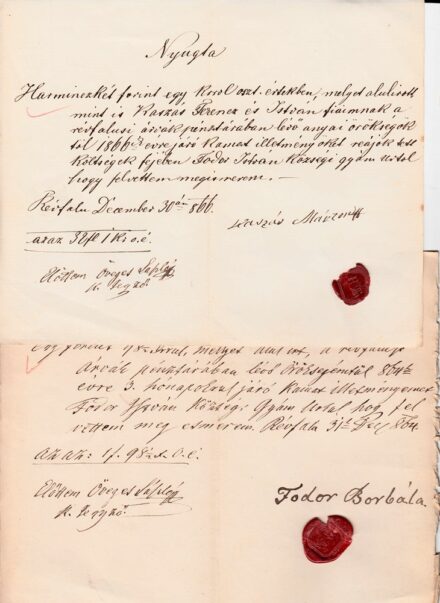 Nyugta
Harminczkét forint egy krrol oszt. értékben, melyet alulirott
mint is Kaszás Ferencz és István fiaimnak a
révfalusi árvák pénztárában lévő anyai örökségök
től 1866ik évre járó kamat illetményökét reájok tett
költségek fejében Fodor István községi gyám úrtól
hogy felvettem megismerem. —
Révfalu December 30án 866.
Kaszás Márton
azaz 32 ft 1 Kr o. é.
Előttem Öveges
k. jegyző
Egy forint 98 krral, melyet alul irt, a révfalusi
Árvák pénztárában lévő Örökségemtől 864ik
évre 3. hónapokra járó Kamat illetményemet
Fodor István Községi Gyám Urtol hogy fel
vettem meg esmerem. Révfalu 31k Dec 864
az az: 1 f. 98 o. é.
Előttem Öveges
k. jegyző
Fodor Borbála.